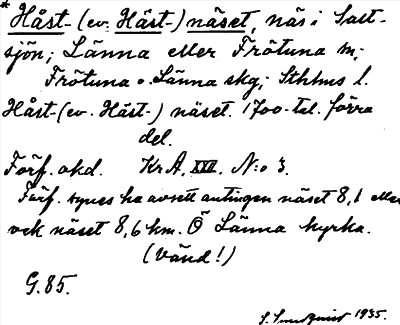 * Håst- (ev. Häst-) näset, näs i Salt-
sjön; Länna eller Frötuna sn;
Frötuna o. Länna skg; Sthlms l.
Håst- (ev. Häst-) näset. 1700-tal. förra
del.
Förf. okd. Kr A. XVI. N:o 3.
Förf. synes ha avsett antingen näset 8,1 eller
och näset 8,6 km. Ö Länna kyrka.
(Vänd!)
G. 85.
S. 1935.